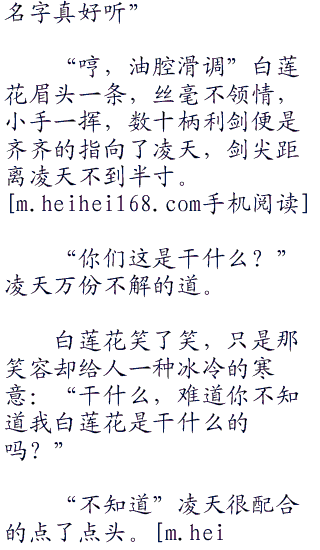 名字真好听”
“哼，油腔滑调”白莲
花眉头一条，丝毫不领情，
小手一挥，数十柄利剑便是
齐齐的指向了凌天，剑尖距
离凌天不到半寸。
[m.heihei168.com手机阅读]
“你们这是干什么？”
凌天万份不解的道。
白莲花笑了笑，只是那
笑容却给人一种冰冷的寒
意：“干什么，难道你不知
道我白莲花是干什么的
吗？”
“不知道”凌天很配合
的点了点头。[m.hei